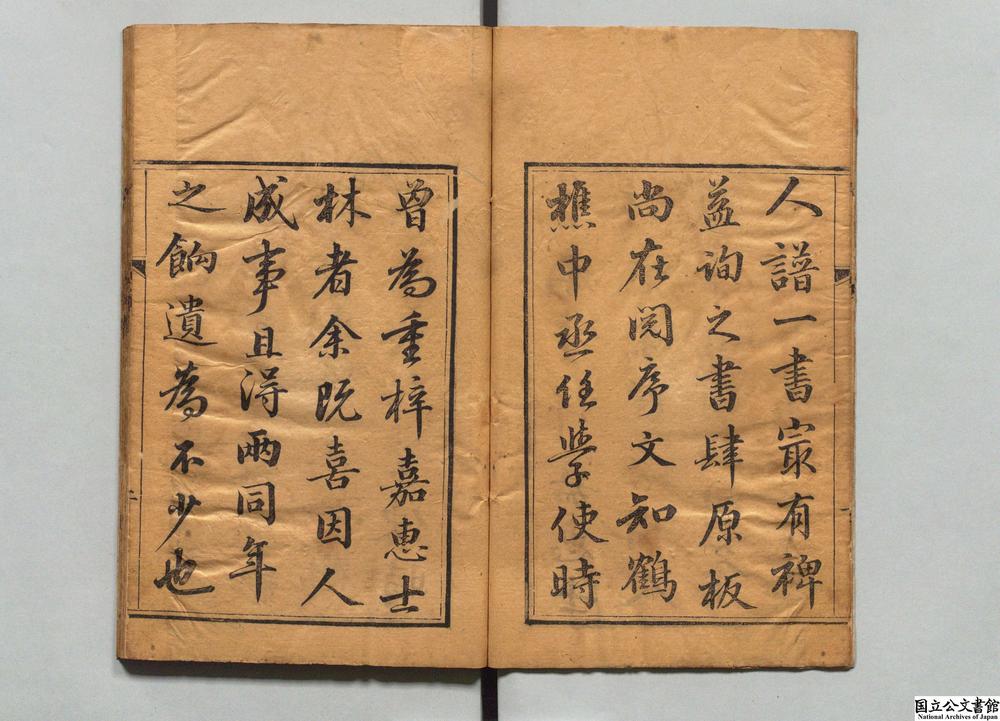 人譜一書㝡有裨
益詢之書肆原板
尚在閱序文知鶴
樵中丞任學使時
曾為重梓嘉惠士
林者余既喜因人
成事且得兩同年
之餉遺為不少也
一
二
国立公文書館
National Archives of Japan